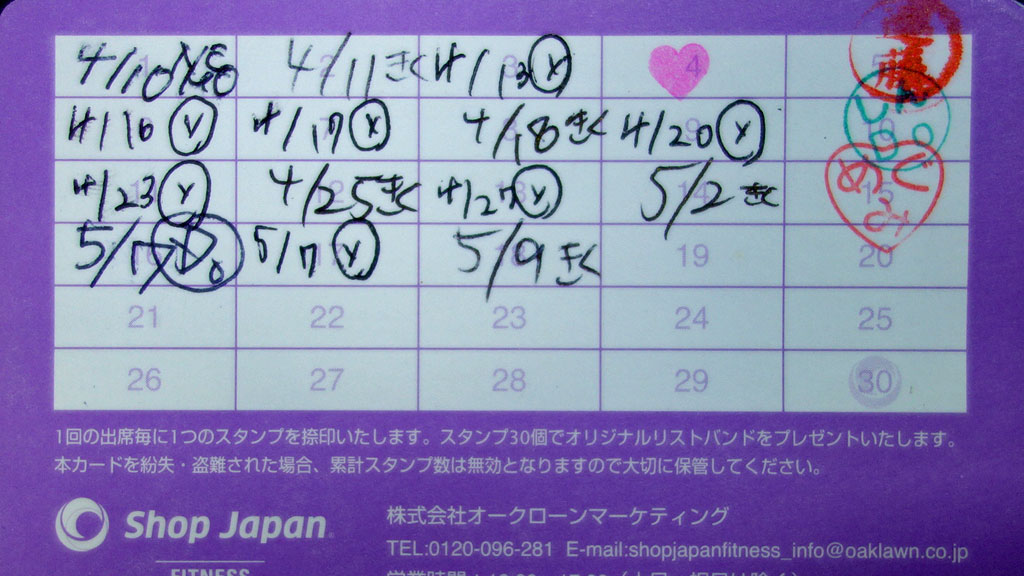 4/10 4/11 きく 4/13 Y 4
4/16 Y 4/17 Y 4/18 きく 4/20 Y
4/23 Y 4/25 きく 4/27 Y 5/2 きく めぐみ 15
5/7 Y 5/9 きく 19 20
21 22 23 24 25
26 27 28 29 30
1回の出席毎に1つのスタンプを捺印いたします。スタンプ30個でオリジナルリストバンドをプレゼントいたします。
本カードを紛失・盗難された場合、累計スタンプ数は無効となりますので大切に保管してください。
Shop Japan
株式会社オークローンマーケティング
TEL:0120-096-281 E-mail:shopjapanfitness_info@oaklawn.co.jp
FITNESS